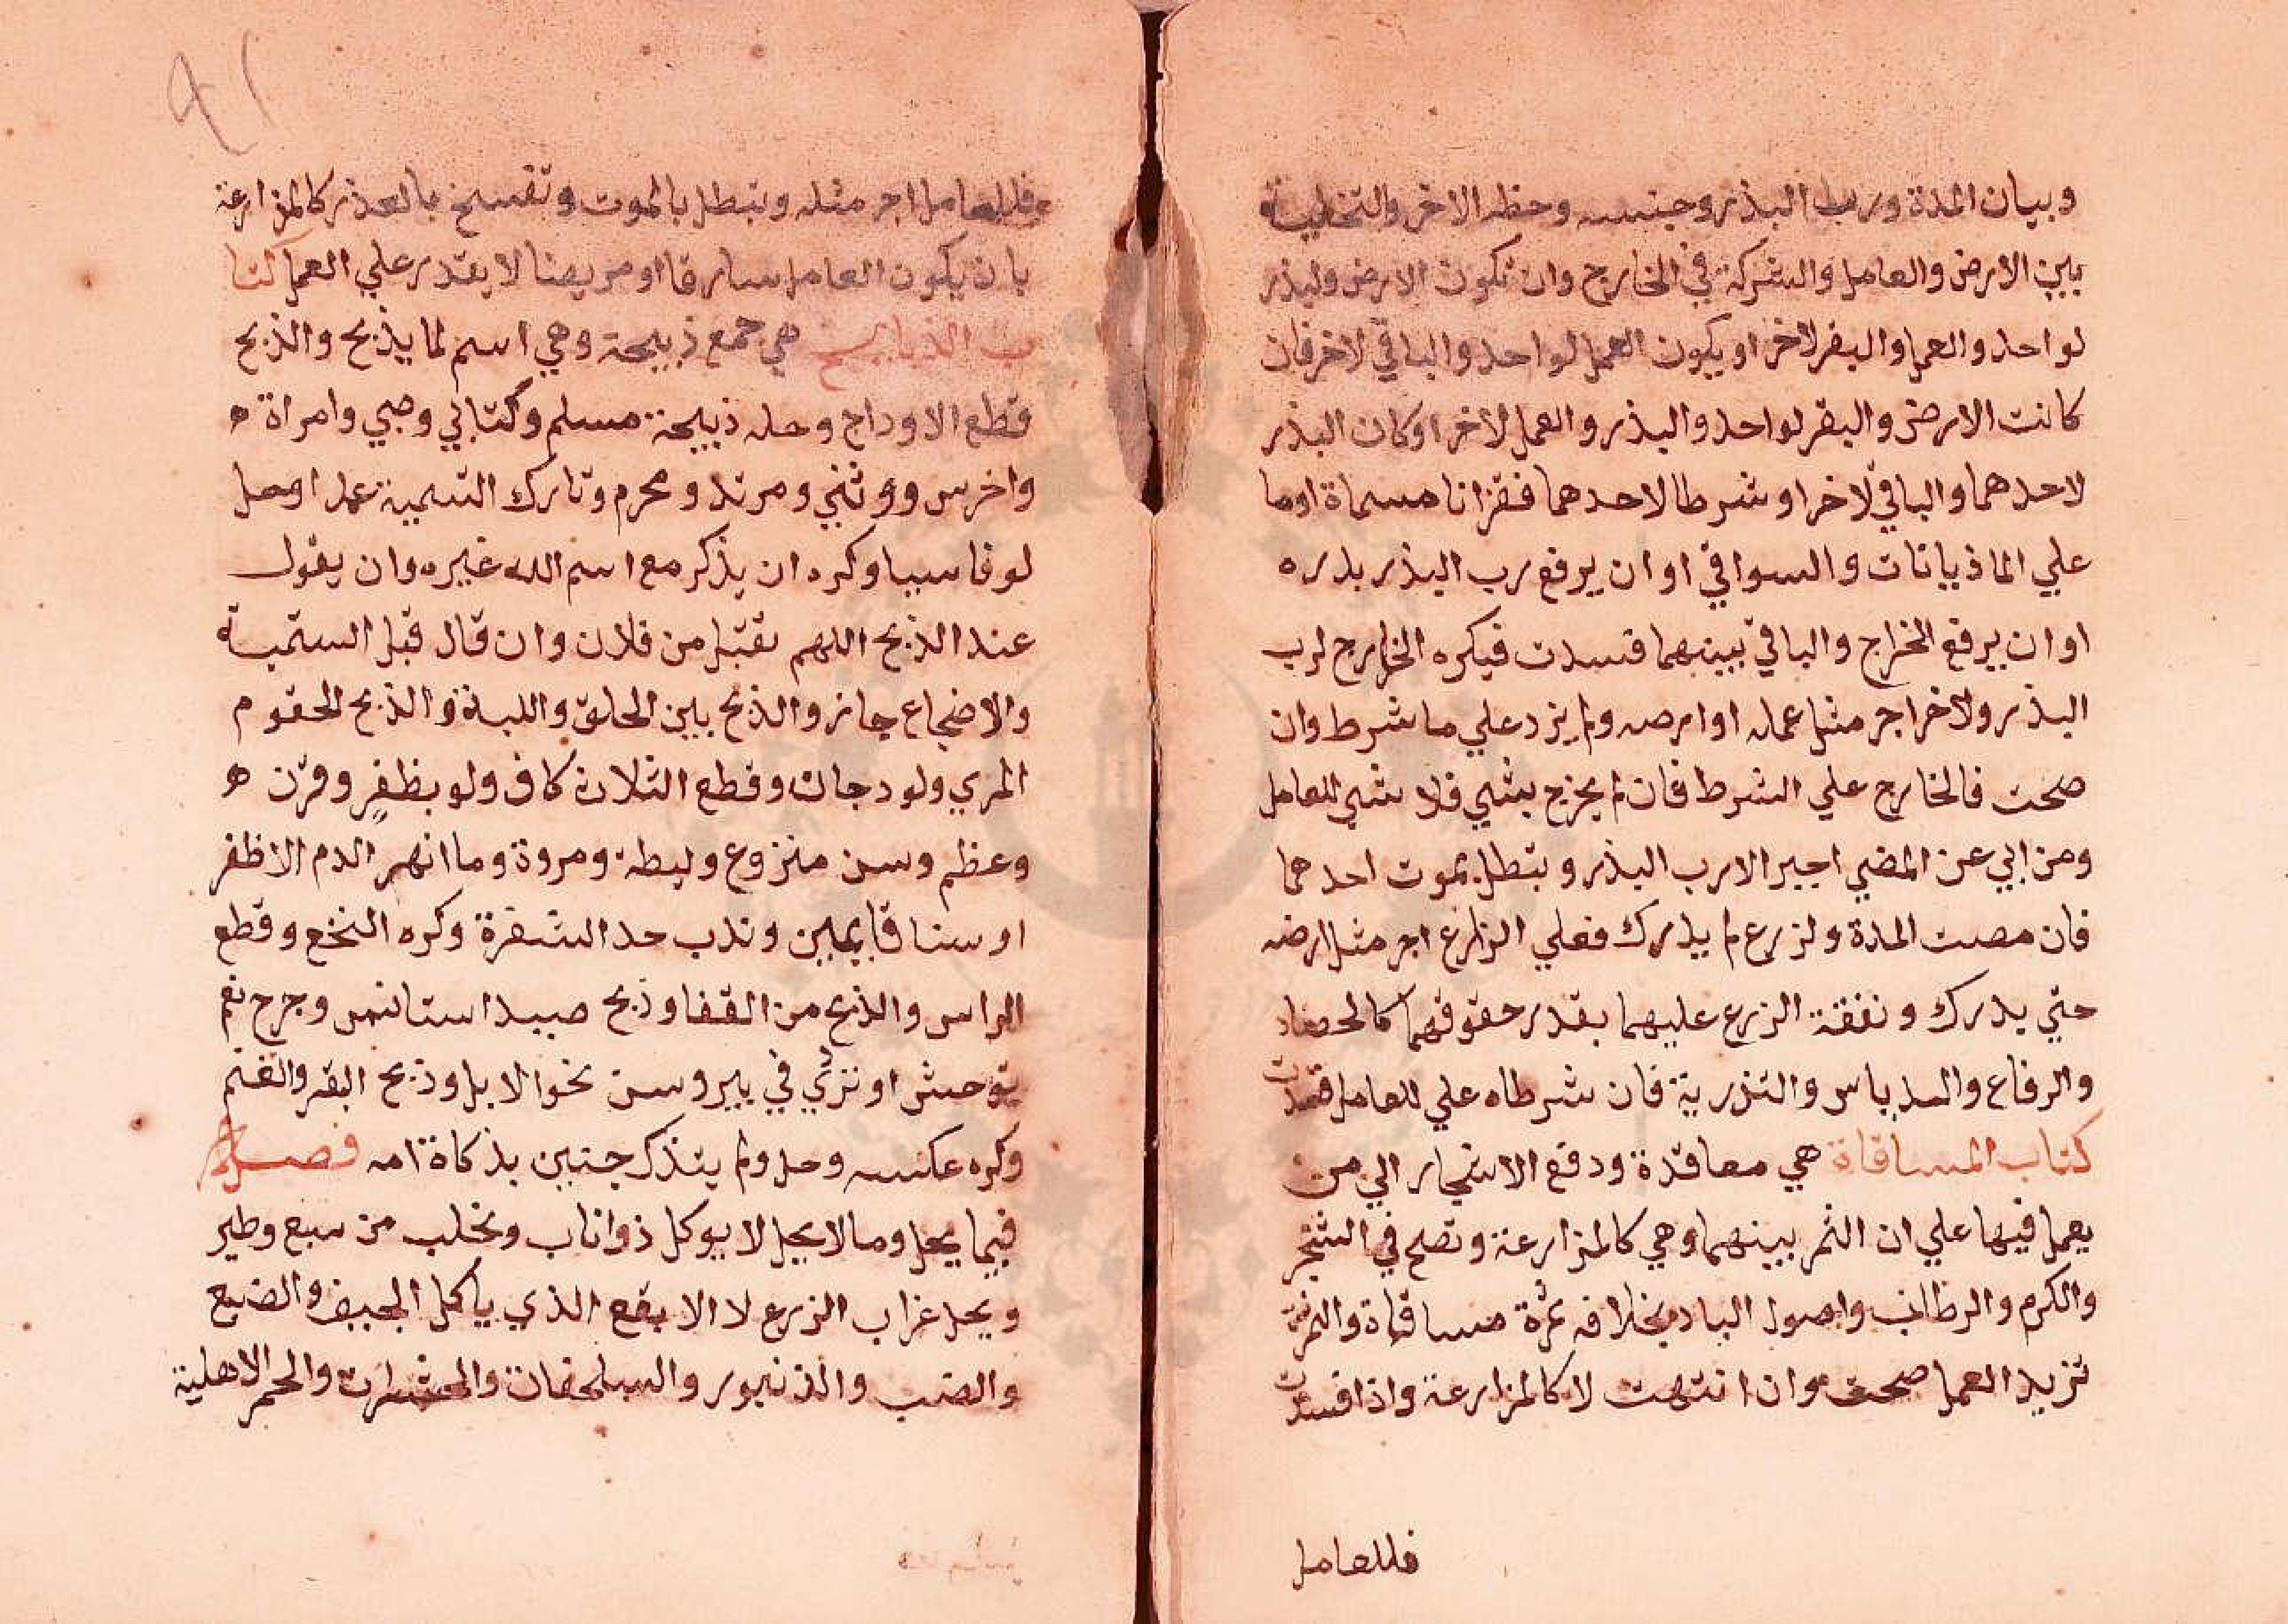 وبيان المدة ورب البذر وجنسه وحظ الاخر والتخلية
بين الارض والعامل والشركة في الخارج وان تكون الارض ولبذر
لواحد والعمل والبقر لاخر او يكون العمل لواحد والباقي لاخر فان
كانت الارض والبقر لواحد والبذر والعمل لاخر او كان البذر
لاحدهما والباقي لاخر او شرطا لاحدهما فقزانا مسماة او ما
علي الماذيانات والسواقي او ان يرفع رب البذر بذره
او ان يرفع الخراج والباقي بينهما فسدت فيكره الخارج لرب
البذر ولاخر اجر مثل عمله او ارضه ولم يزد علي ما شرط وان
صحت فالخارج علي الشرط فان لم يخرج بشي فلا شي للعامل
ومن ابي عن المضي اجبر الا رب البذر وبتطل بموت احدهما
فان مضت المدة ولزرع لم يدرك فعلي الزارع اجر مثل ارضه
حتي يدرك ونفقة الزرع عليهما بقدر حقوقهما كالحصاد
والرفاع والدياس والتذرية فان شرطاه علي للعامل فسدت
كتاب المساقاة هي معاقدة ودفع الاشجار الي من
يعمل فيها علي ان الثمر بينهما وهي كالمزارعة وتصح في الشجر
والكرم والرطاب واصول الباد بخلافه ثمرة مساقاة والثمرة
تزيد العمل صحت وان انتهت لا كالمزارعة واذا فسدت
فللعامل
٩١
فللعامل اجر مثله وتبطل بالموت وتفسخ بالعذر كالمزارعة
بان يكون العامل سارقا او مريضا لا يقدر علي العمل كتا
ب الذبايح هي جمع ذبيحة وهي اسم لما يذبح والذبح
قطع الاوداج وحل ذبيحة مسلم وكتابي وصبي وامراة ه
واخرس ووثني ومرتد ومحرم وتارك التسمية عمدا وحل
لو ناسيا وكره ان يذكر مع اسم الله غيره وان يقول
عند الذبح اللهم تقبل من فلان وان قال قبل الستمية
والاضجاع جاز والذبح بين الحلق واللبة والذبح لحقوم
المري ولودجان وقطع الثلاث كاف ولو بظفر وقرن ه
وعظم وسن منزوع وليطة ومروة وما انهر الدم الا ظفر
او سنا قايمين وندب حد الشفرة وكره النخع وقطع
الراس والذبح من القفا وذبح صيد استانس وجرح نعم
توحش او نزي في بير وسن نحو الابل وذبح البقر والغنم
وكره عكسه وحل ولم يتذك جنين بذكاة امه فصل
فيما يحل وما لا يحل لا يوكل ذوا ناب ومخلب من سبع وطير
ويحل غراب الزرع لا الابقع الذي ياكل الجيف والضبع
والضب والذنبور والسلحفات والحشرات والحمر الاهلية